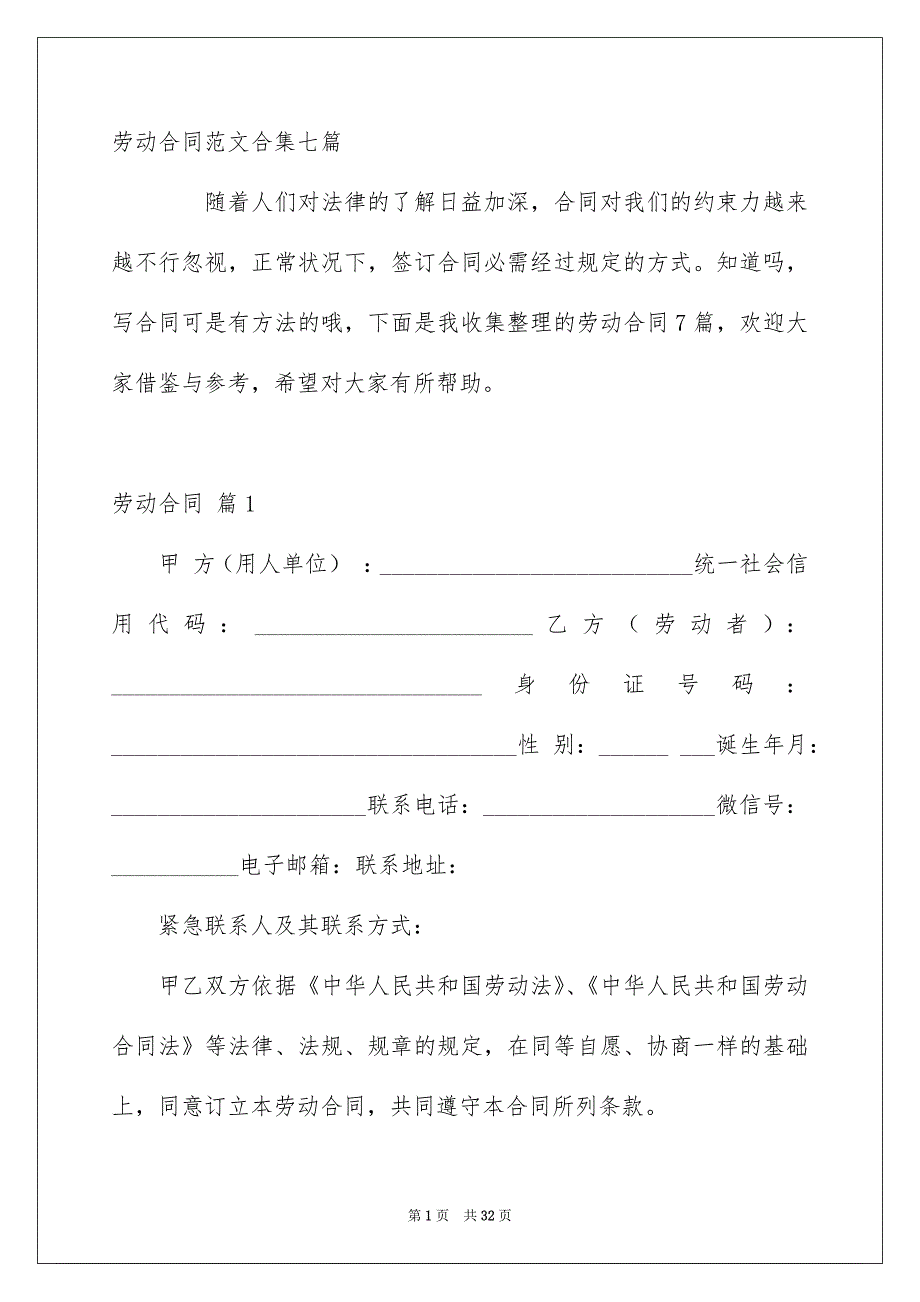 劳动合同范文合集七篇
随着人们对法律的了解日益加深，合同对我们的约束力越来
越不行忽视，正常状况下，签订合同必需经过规定的方式。知道吗，
写合同可是有方法的哦，下面是我收集整理的劳动合同 7 篇，欢迎大
家借鉴与参考，希望对大家有所帮助。
劳动合同 篇 1
甲 方（用人单位） ：___________________________统一社会信
用 代 码 ： ________________________ 乙 方 （ 劳 动 者 ）：
________________________________ 身 份 证 号 码 ：
___________________________________性 别：______ ___诞生年月：
______________________联系电话：____________________微信号：
___________电子邮箱：联系地址：
紧急联系人及其联系方式：
甲乙双方依据《中华人民共和国劳动法》、《中华人民共和国劳动
合同法》等法律、法规、规章的规定，在同等自愿、协商一样的基础
上，同意订立本劳动合同，共同遵守本合同所列条款。
第 1 页 共 32 页